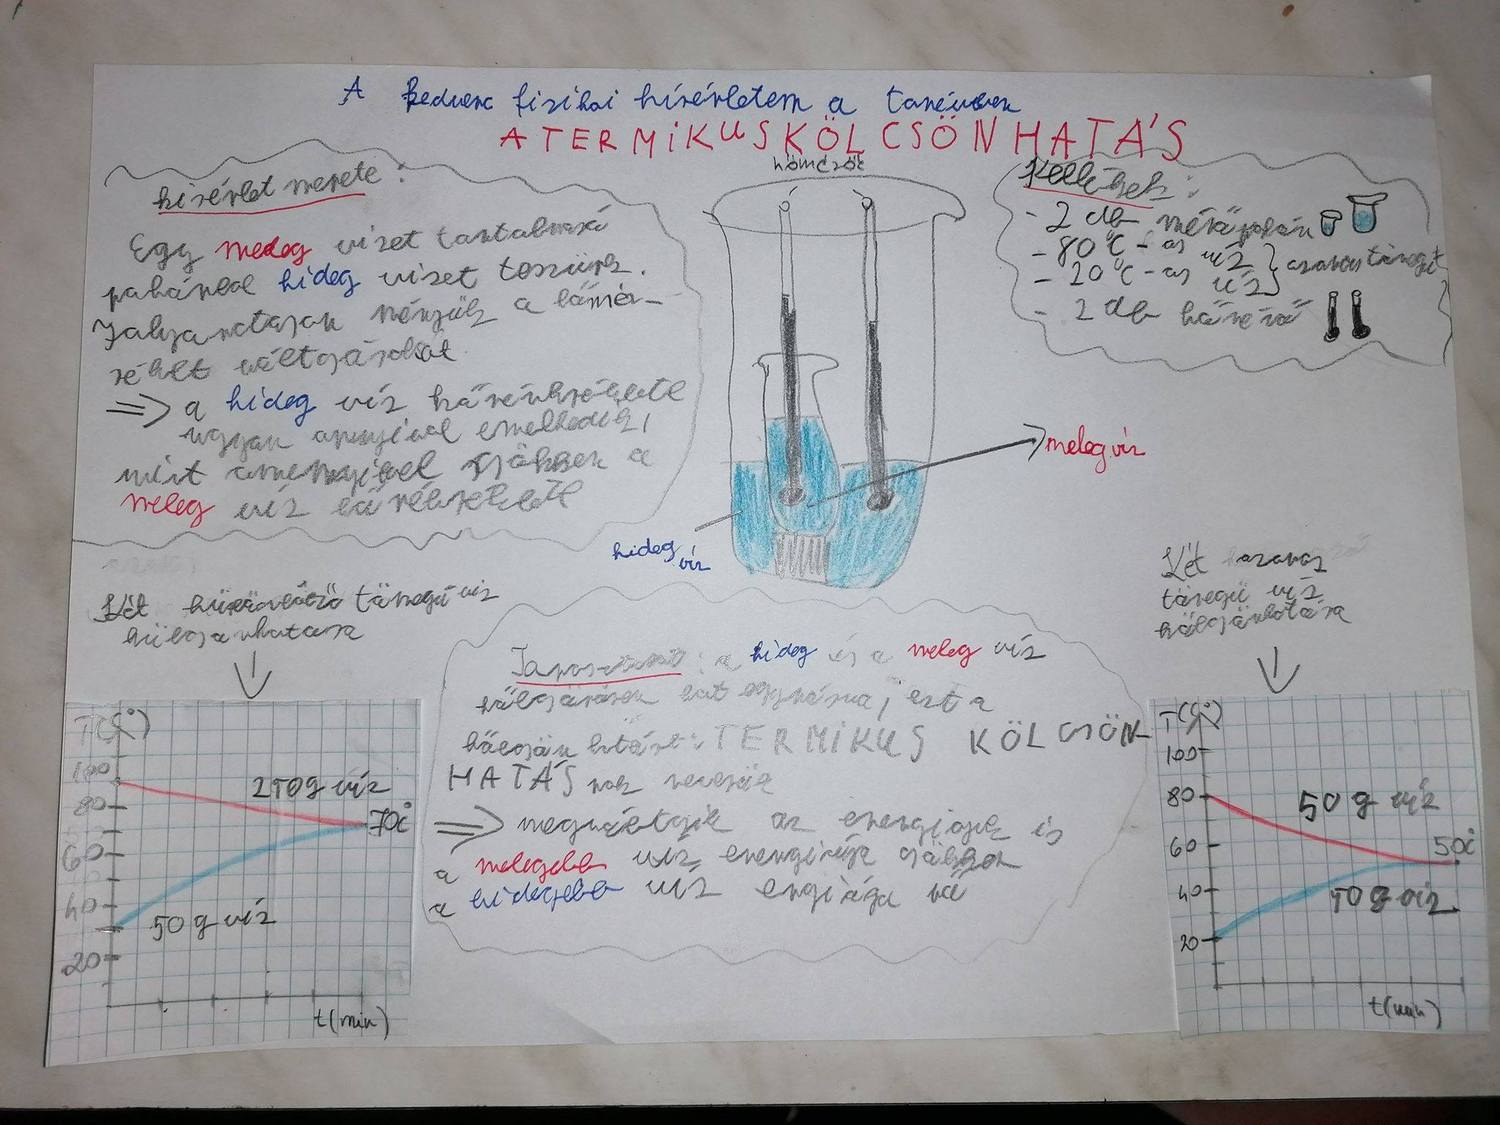 A kedvenc fizikai kísérletem a tanévben
A TERMIKUS KÖLCSÖNHATÁS
kísérlet menete:
Egy meleg vizet tartalmazó
pohárral hideg vizet teszünk.
nézzük a
változását
⇒ a hideg víz hőmérséklete
ugyan annyival emelkedik,
mint amennyivel csökken a
meleg víz hőmérséklete
hőmérő
Kellékek:
- 2 db mérőpohár
- 80°C-os víz } azonos tömegű
- 20°C-os víz
- 2 db hőmérő
meleg víz
hideg víz
Két különböző tömegű víz
kölcsönhatása
T(C°)
100
80
60
40
20
250g víz
70c°
50g víz
t(min)
: a hideg és a meleg víz
kölcsönösen hat egymásra, ezt a
kölcsönhatást TERMIKUS KÖLCSÖN
HATÁSnak nevezzük
⇒ megváltozik az energiájuk is
a melegebb víz energiája csökken
a hidegebb víz engiága nő
Két azonos
tömegű víz
kölcsönhatása
T(C°)
100
80
60
40
20
50g víz
50c°
50g víz
t(min)